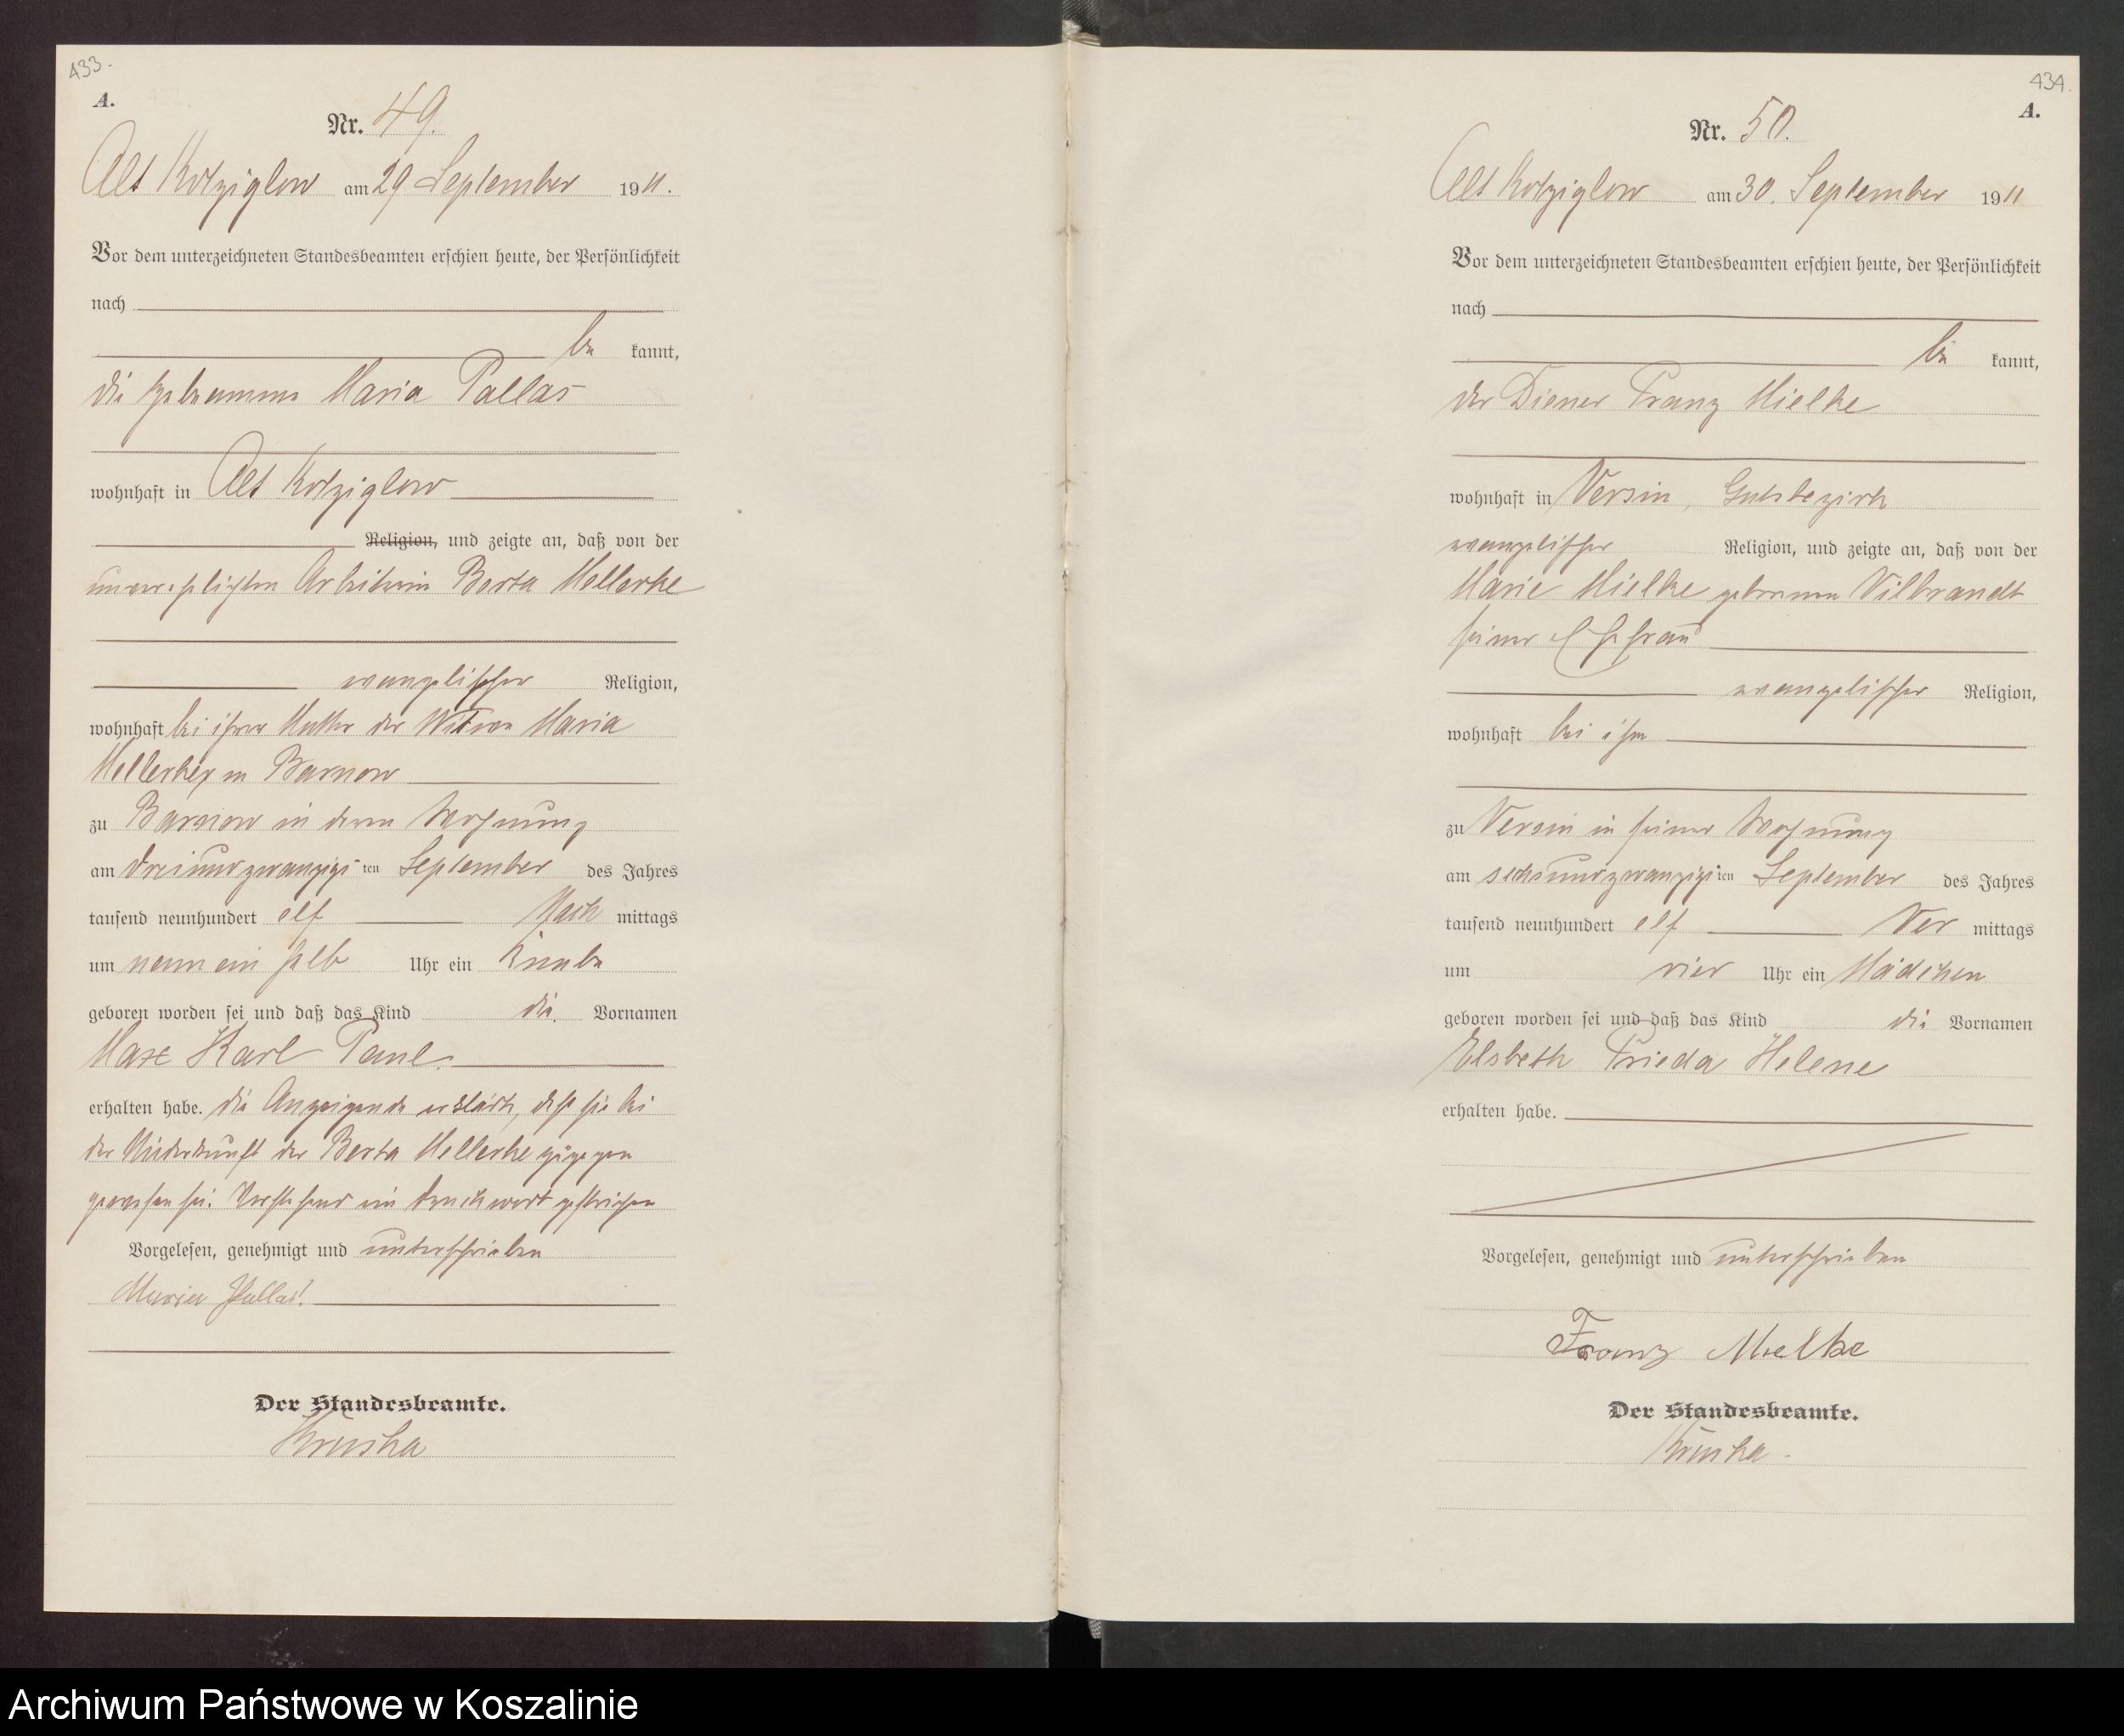 433.
A.
Nr. 49.
Alt Kolziglow am 29 September 1911.
Vor dem unterzeichneten Standesbeamten erschien heute, der Persönlichkeit
nach
be kannt,
die Hebeamme Maria Pallas
wohnhaft in Alt Kolziglow
Religion, und zeigte an, daß von der
unverehelichten Arbeiterin Berta Mellerke
evangelischer Religion,
wohnhaft bei ihrer Mutter der Witwe Maria
Mellerke, in Barnow
zu Barnow in deren Wohnung
am dreiundzwanzigsten September des Jahres
tausend neunhundert elf Nach mittags
um neun ein halb Uhr ein Knabe
geboren worden sei und daß das Kind die Vornamen
Max Karl Paul
erhalten habe. die Anzeigende erklärte, daß sie bei
der Niederkunft der Berta Mellerke zugegen
gewesen sei. Vorstehend ein Druckwort gestrichen
Vorgelesen, genehmigt und unterschrieben
Maria Pallas.
Der Standesbeamte.
Kruska
434.
A.
Nr. 50.
Alt Kolziglow am 30. September 1911
Vor dem unterzeichneten Standesbeamten erschien heute, der Persönlichkeit
nach
be kannt,
der Diener Franz Mielke
wohnhaft in Versin, Gutsbezirk
evangelischer Religion, und zeigte an, daß von der
Marie Mielke geborenen Vilbrandt
seiner Ehefrau
evangelischer Religion,
wohnhaft bei ihm
zu Versin in seiner Wohnung
am sechsundzwanzigsten September des Jahres
tausend neunhundert elf Vor mittags
um vier Uhr ein Mädchen
geboren worden sei und daß das Kind die Vornamen
Elsbeth Frieda Helene
erhalten habe.
Vorgelesen, genehmigt und unterschrieben
Franz Mielke
Der Standesbeamte.
Kruska.
Archiwum Państwowe w Koszalinie